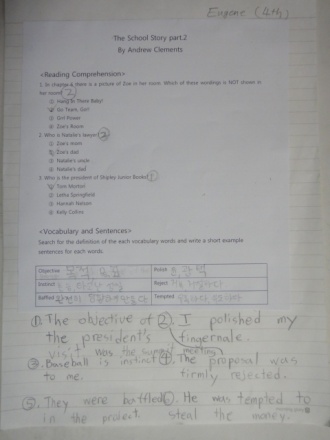 Eugene (4th)
The School Story part.2
By Andrew Clements
<Reading Comprehension>
1. In chapter 6 there is a picture of Zoe in her room. Which of these wordings is NOT shown in
her room? 2
① Hang In There Baby!
② Go Team, Go!!
③ Girl Power
④ Zoe's Room
2. Who is Natalie's lawyer? 2
① Zoe's mom
② Zoe's dad
③ Natalie's uncle
④ Natalie's dad
3. Who is the president of Shipley Junior Books? 1
① Tom Morton
② Letha Springfield
③ Hannah Nelson
④ Kelly Collins
<Vocabulary and Sentences>
Search for the definition of the each vocabulary words and write a short example
sentences for each words.
Objective 목적 Polish 광택
Instinct Reject
Baffled Tempted
①. The objective of ②. I polished my
the president's fingernale.
visit was the summit meeting.
③. Baseball is instinct ④. The proposal was
to me. firmly rejected.
⑤. They were baffled ⑥. He was tempted to
in the project steal the money.